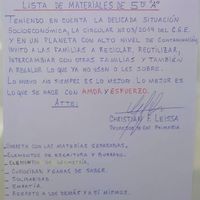 LISTA DE MATERIALES DE 5TO "A"
TENIENDO EN CUENTA LA DELICADA SITUACIÓN
SOCIOECONÓMICA, LA CIRCULAR Nº 03/2019 DEL C.G.E.
Y EN UN PLANETA CON ALTO NIVEL DE CONTAMINACIÓN
INVITO A LAS FAMILIAS A RECICLAR, REUTILIZAR,
INTERCAMBIAR CON OTRAS FAMILIAS Y TAMBIÉN
A REGALAR LO QUE YA NO USAN O LES SOBRE.
LO NUEVO NO SIEMPRE ES LO MEJOR. LO MEJOR ES
LO QUE SE HACE CON AMOR Y ESFUERZO.
ATTE:
CHRISTIAN F. LEISSA
PROFESOR DE ED. PRIMARIA
- CARPETA CON LAS MATERIAS SEPARADAS.
- ELEMENTOS DE ESCRITURA Y BORRADO.
- ELEMENTOS DE GEOMETRÍA.
- CURIOSIDAD Y GANAS DE SABER.
- SOLIDARIDAD.
- EMPATÍA.
- RESPETO A LOS DEMÁS Y A TÍ MISMOS.